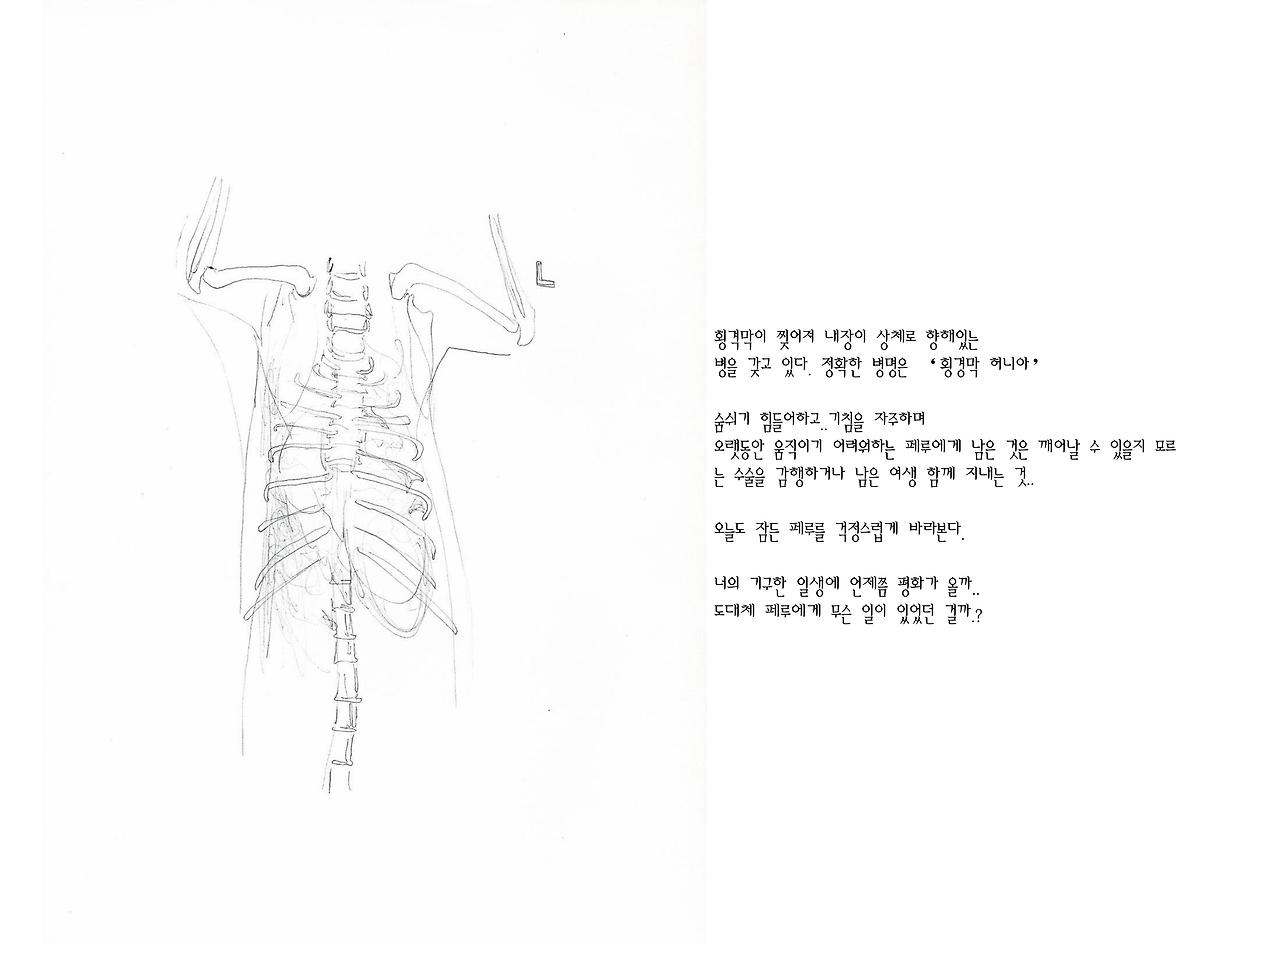 L
횡격막이 찢어져 내장이 상체로 향해있는
병을 갖고 있다. 정확한 병명은 ‘횡경막 허니아’
숨쉬기 힘들어하고..기침을 자주하며
오랫동안 움직이기 어려워하는 페루에게 남은 것은 깨어날 수 있을지 모르
는 수술을 감행하거나 남은 여생 함께 지내는 것..
오늘도 잠든 페루를 걱정스럽게 바라본다.
너의 기구한 일생에 언제쯤 평화가 올까..
도대체 페루에게 무슨 일이 있었던 걸까.?